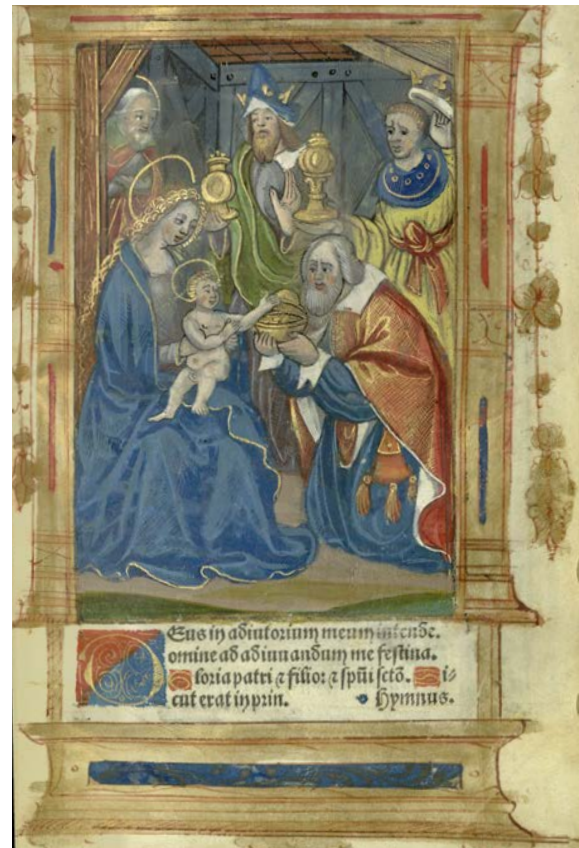 DEus in adiutorium meum intende.
omine ad adiuuandum me festina.
Gloria patri ⁊ filio: ⁊ spūi sctō. Si-
cut erat in prin. Hymnus.